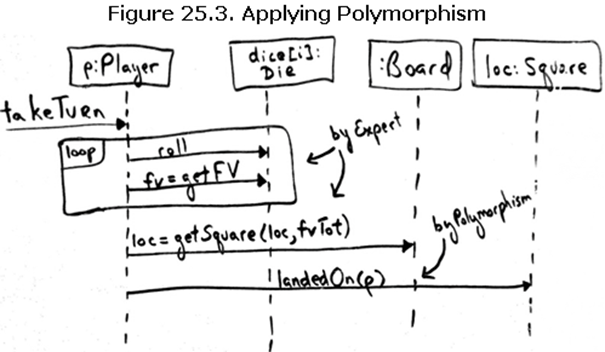 Figure 25.3. Applying Polymorphism
p:Player
dice[i]:
Die
:Board
loc: Square
takeTurn
loop
roll
fv=getFV
by Expert
loc=getSquare(loc, fvTot)
by Polymorphism
landedOn(p)